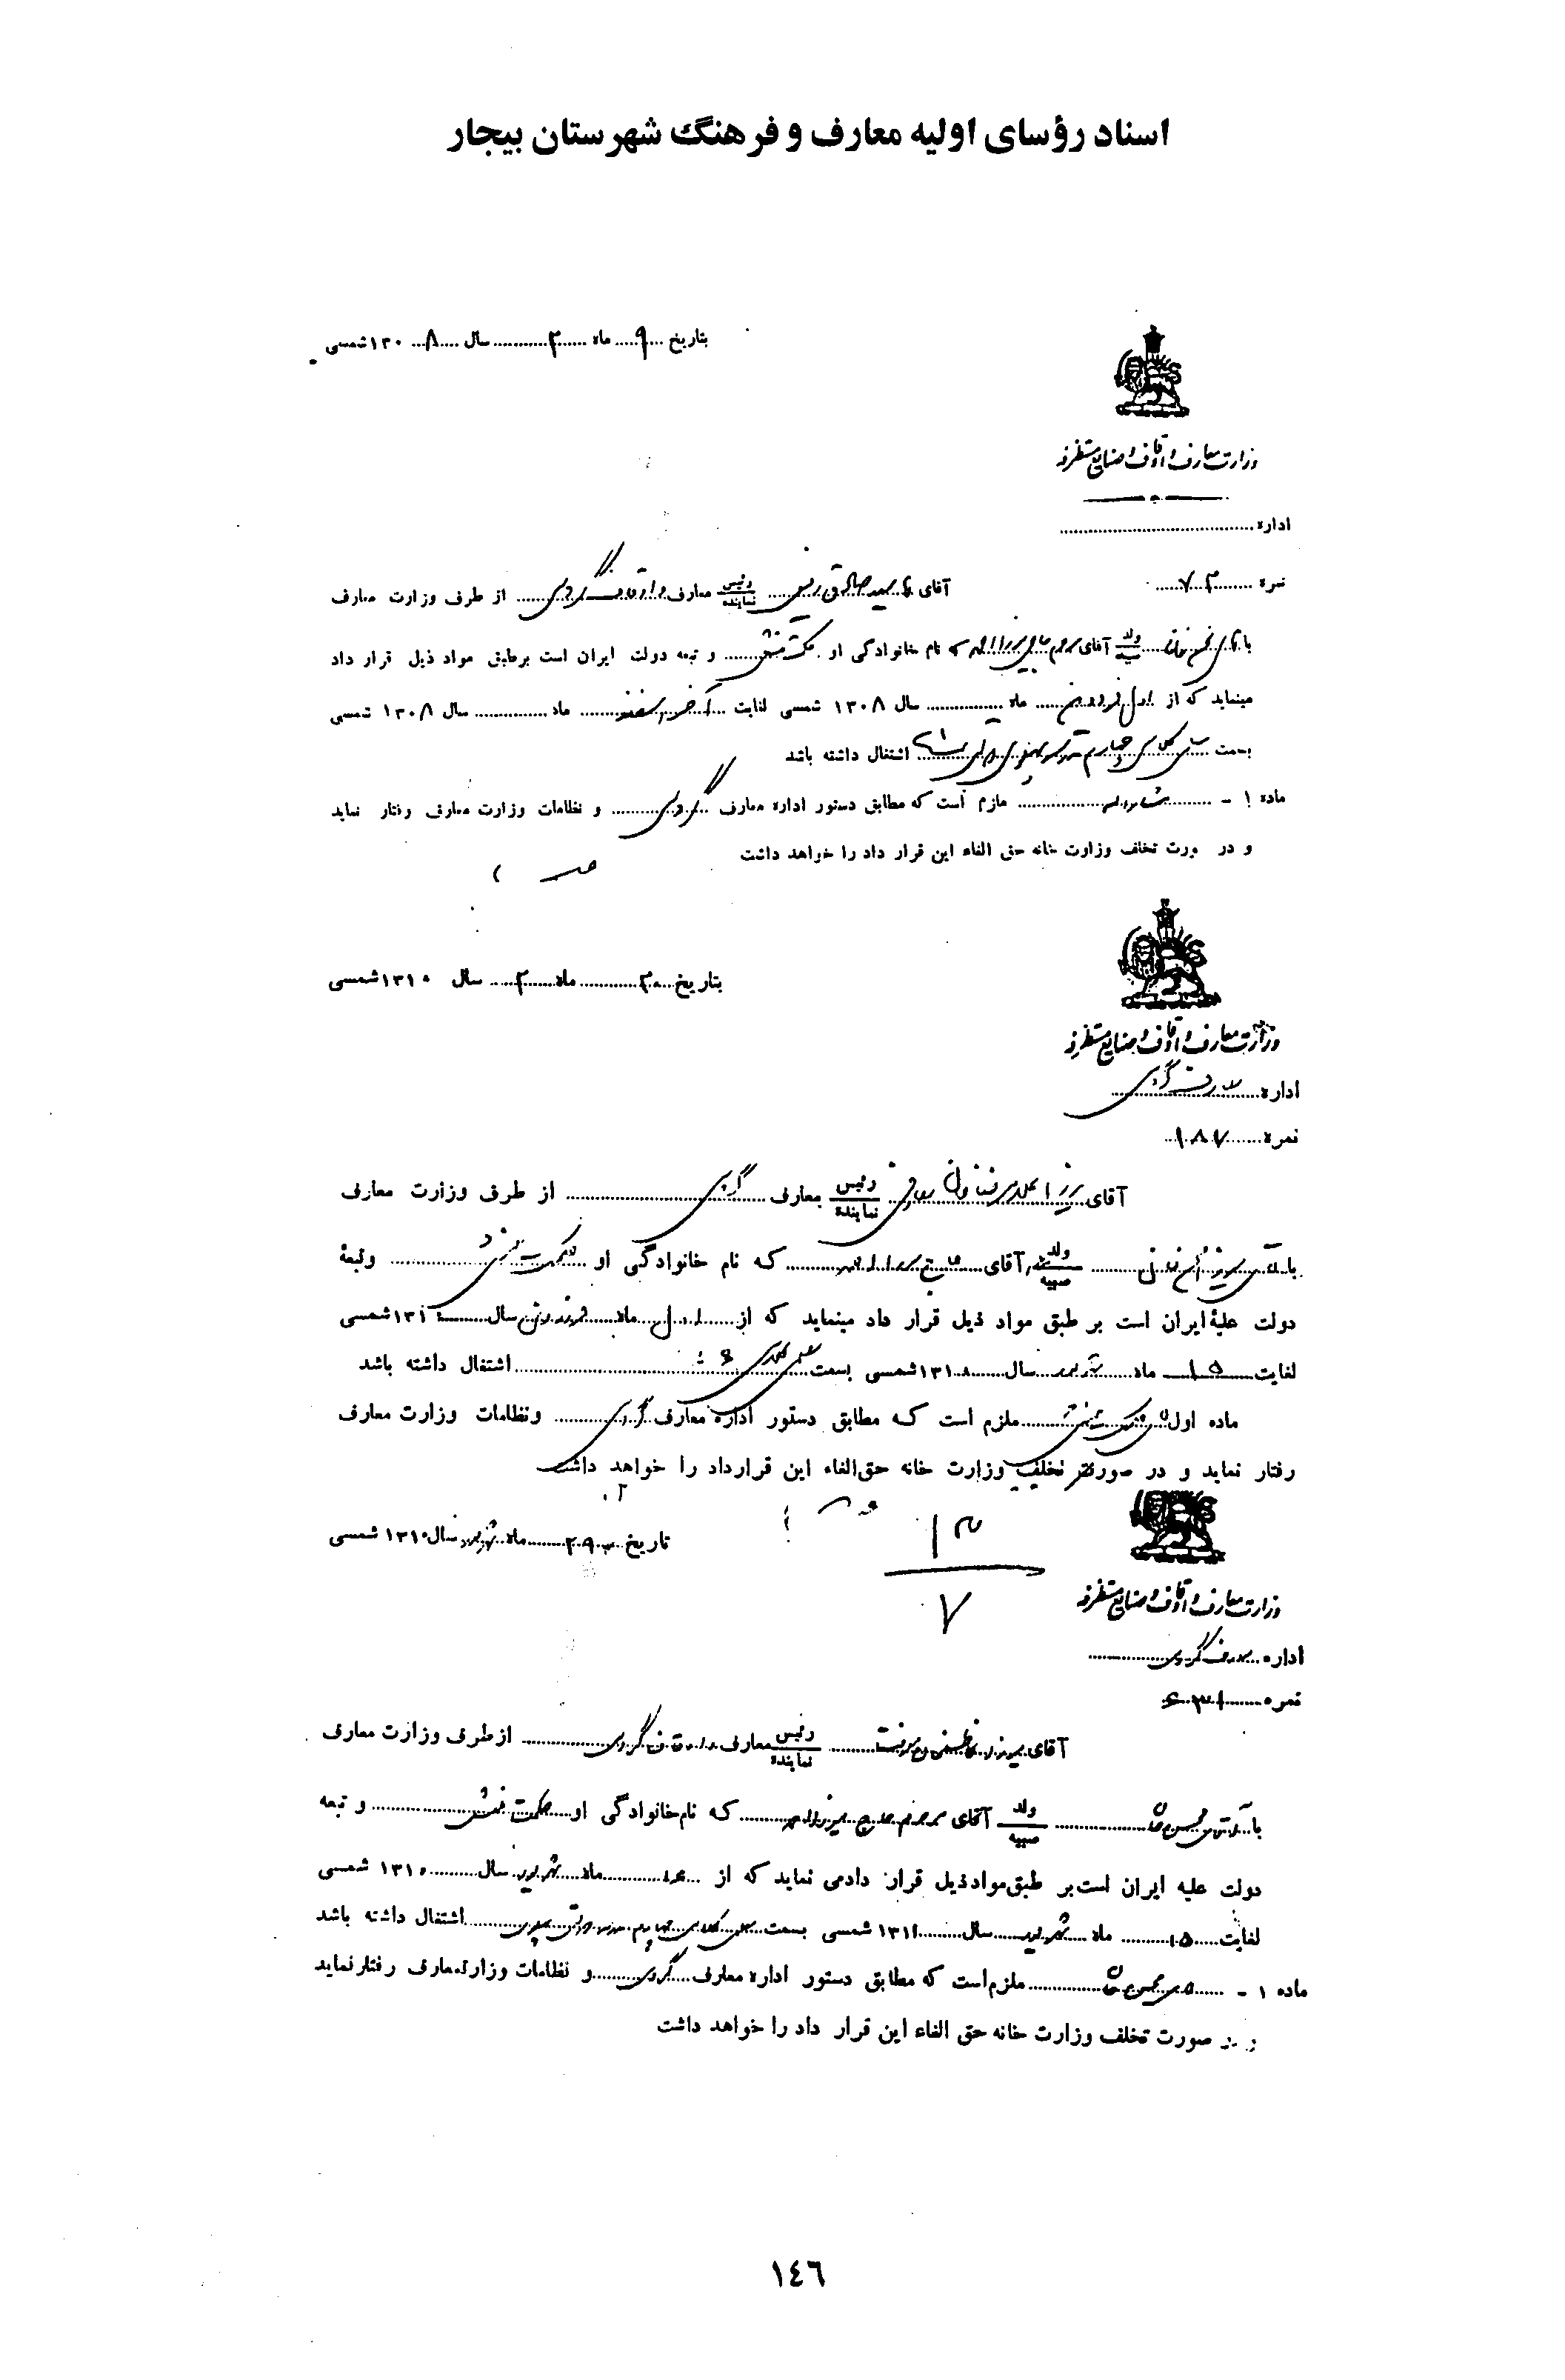 اسناد رؤسای اولیه معارف و فرهنگ شهرستان بیجار
بتاریخ ۹ ماه ۲ سال ۱۳۰۸ شمسی
وزارت معارف و اوقاف و صنایع مستظرفه
اداره
نمره ۷۳
آقای سید صادق رئیس نماینده معارف و اوقاف گروس از طرف وزارت معارف
ولد صبیه آقای مرحوم که نام خانوادگی او حکمت منش و تبعه دولت ایران است برطبق مواد ذیل قرار داد
مینماید که از اول فروردین ماه سال ۱۳۰۸ شمسی لغایت آخر اسفند ماه سال ۱۳۰۸ شمسی
بسمت کلاس چهارم اشتغال داشته باشد
ماده ۱ - ملزم است که مطابق دستور اداره معارف گروس و نظامات وزارت معارف رفتار نماید
و در صورت تخلف وزارت خانه حق الغاء این قرار داد را خواهد داشت
بتاریخ ۳۰ ماه ۲ سال ۱۳۱۰ شمسی
وزارت معارف و اوقاف و صنایع مستظرفه
اداره معارف گروس
نمره ۱۸۷
آقای رئیس نماینده معارف گروس از طرف وزارت معارف
ولد صبیه آقای که نام خانوادگی او حکمت منش وتبعهٔ
دولت علیهٔ ایران است بر طبق مواد ذیل قرار داد مینماید که از اول ماه فروردین سال ۱۳۱۰ شمسی
لغایت ۱۵ ماه سال ۱۳۱۰ شمسی بسمت معلمی کلاس ۶ اشتغال داشته باشد
ماده اول ملزم است که مطابق دستور اداره معارف گروس ونظامات وزارت معارف
رفتار نماید و در صورت تخلف وزارت خانه حق‌الغاء این قرارداد را خواهد داشت
۱۳
۷
تاریخ ۲۹ ماه شهریور سال ۱۳۱۰ شمسی
وزارت معارف و اوقاف و صنایع مستظرفه
اداره معارف گروس
نمره ۶۳۱
آقای رئیس نماینده معارف و اوقاف گروس از طرف وزارت معارف
با آقای محسن خان ولد صبیه آقای مرحوم حاج میرزا که نام خانوادگی او حکمت منش و تبعه
دولت علیه ایران است بر طبق مواد ذیل قرار دادمی نماید که از ماه شهریور سال ۱۳۱۰ شمسی
لغایت ۱۵ ماه شهریور سال ۱۳۱۱ شمسی بسمت معلمی کلاس چهارم مدرسه دولتی پهلوی اشتغال داشته باشد
ماده ۱ - آقای محسن خان ملزم است که مطابق دستور اداره معارف گروس و نظامات وزارت معارف رفتار نماید
صورت تخلف وزارت خانه حق الغاء این قرار داد را خواهد داشت
١٤٦